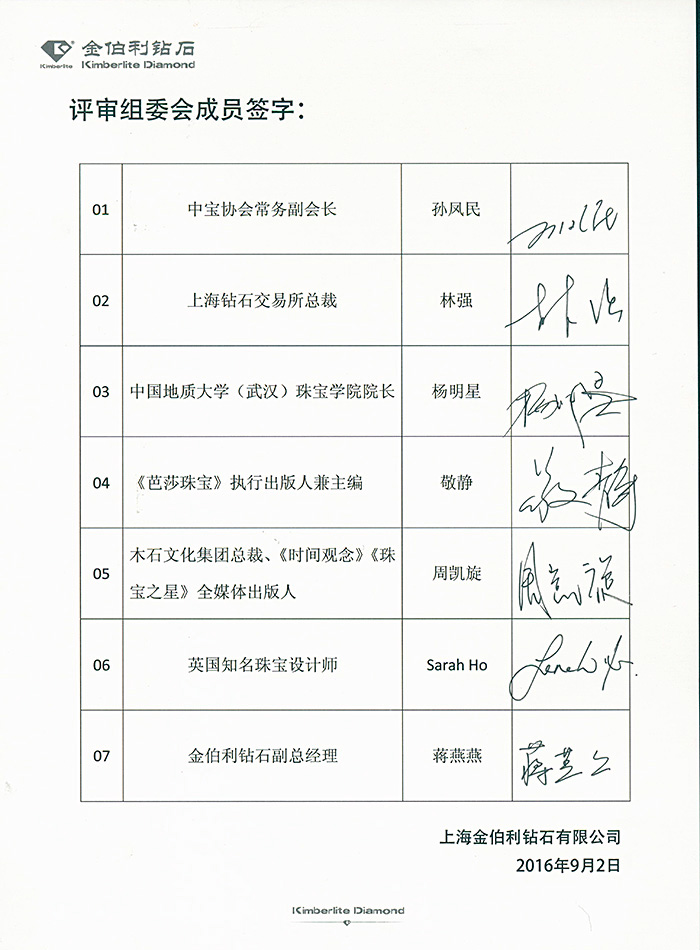 金伯利钻石
Kimberlite
Kimberlite Diamond
评审组委会成员签字：
01 中宝协会常务副会长 孙凤民
02 上海钻石交易所总裁 林强
03 中国地质大学（武汉）珠宝学院院长 杨明星
04 《芭莎珠宝》执行出版人兼主编 敬静
05 木石文化集团总裁、《时间观念》《珠
宝之星》全媒体出版人 周凯旋
06 英国知名珠宝设计师 Sarah Ho
07 金伯利钻石副总经理 蒋燕燕
上海金伯利钻石有限公司
2016年9月2日
Kimberlite Diamond